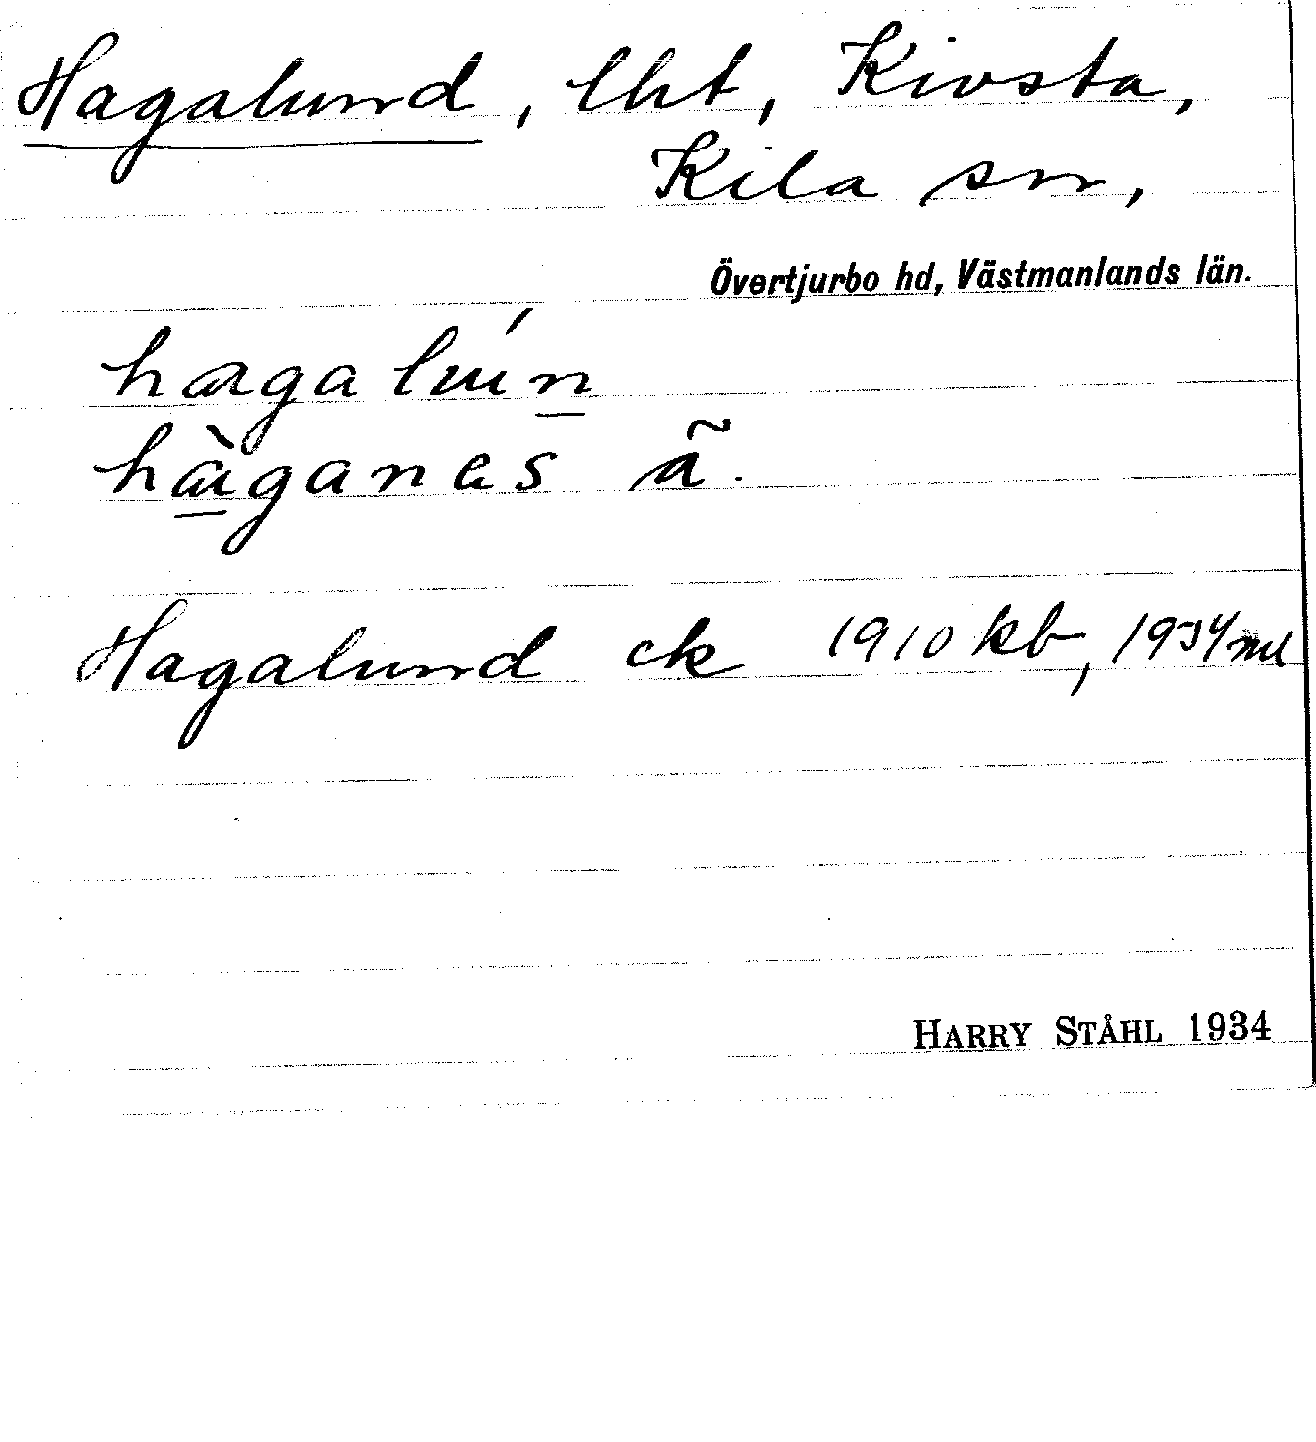 Hagalund, lht, Kivsta,
Kila sn,
Övertjurbo hd, Västmanlands län.
hagalun
hàganes ã.
Hagalund ck 1910 kb, 1934 ml
HARRY STÅHL 1934